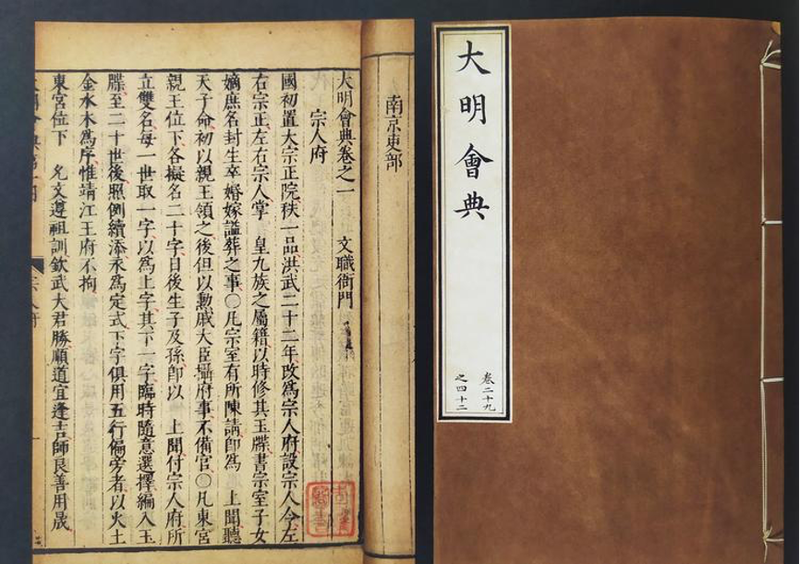 南京吏部
大明會典卷之一 文職衙門
宗人府
國初置大宗正院秩一品洪武二十二年改為宗人府設宗人令左
右宗正左右宗人掌 皇九族之屬籍以時修其玉牒書宗室子女
嫡庶名封生卒婚嫁諡葬之事○凡宗室有所陳請即為 上聞聽
天子命初以親王領之後但以勲戚大臣攝府事不備官○凡東宮
親王位下各擬名二十字日後生子及孫即以 上聞付宗人府所
立雙名每一世取一字以為上字其下一字臨時隨意選擇編入玉
牒至二十世後照例續添永為定式下字俱用五行偏旁者以火土
金水木為序惟靖江王府不拘
東宮位下 允文遵祖訓欽武大君勝順道宜逢吉師良善用晟
大明會典
卷二十九
之四十二